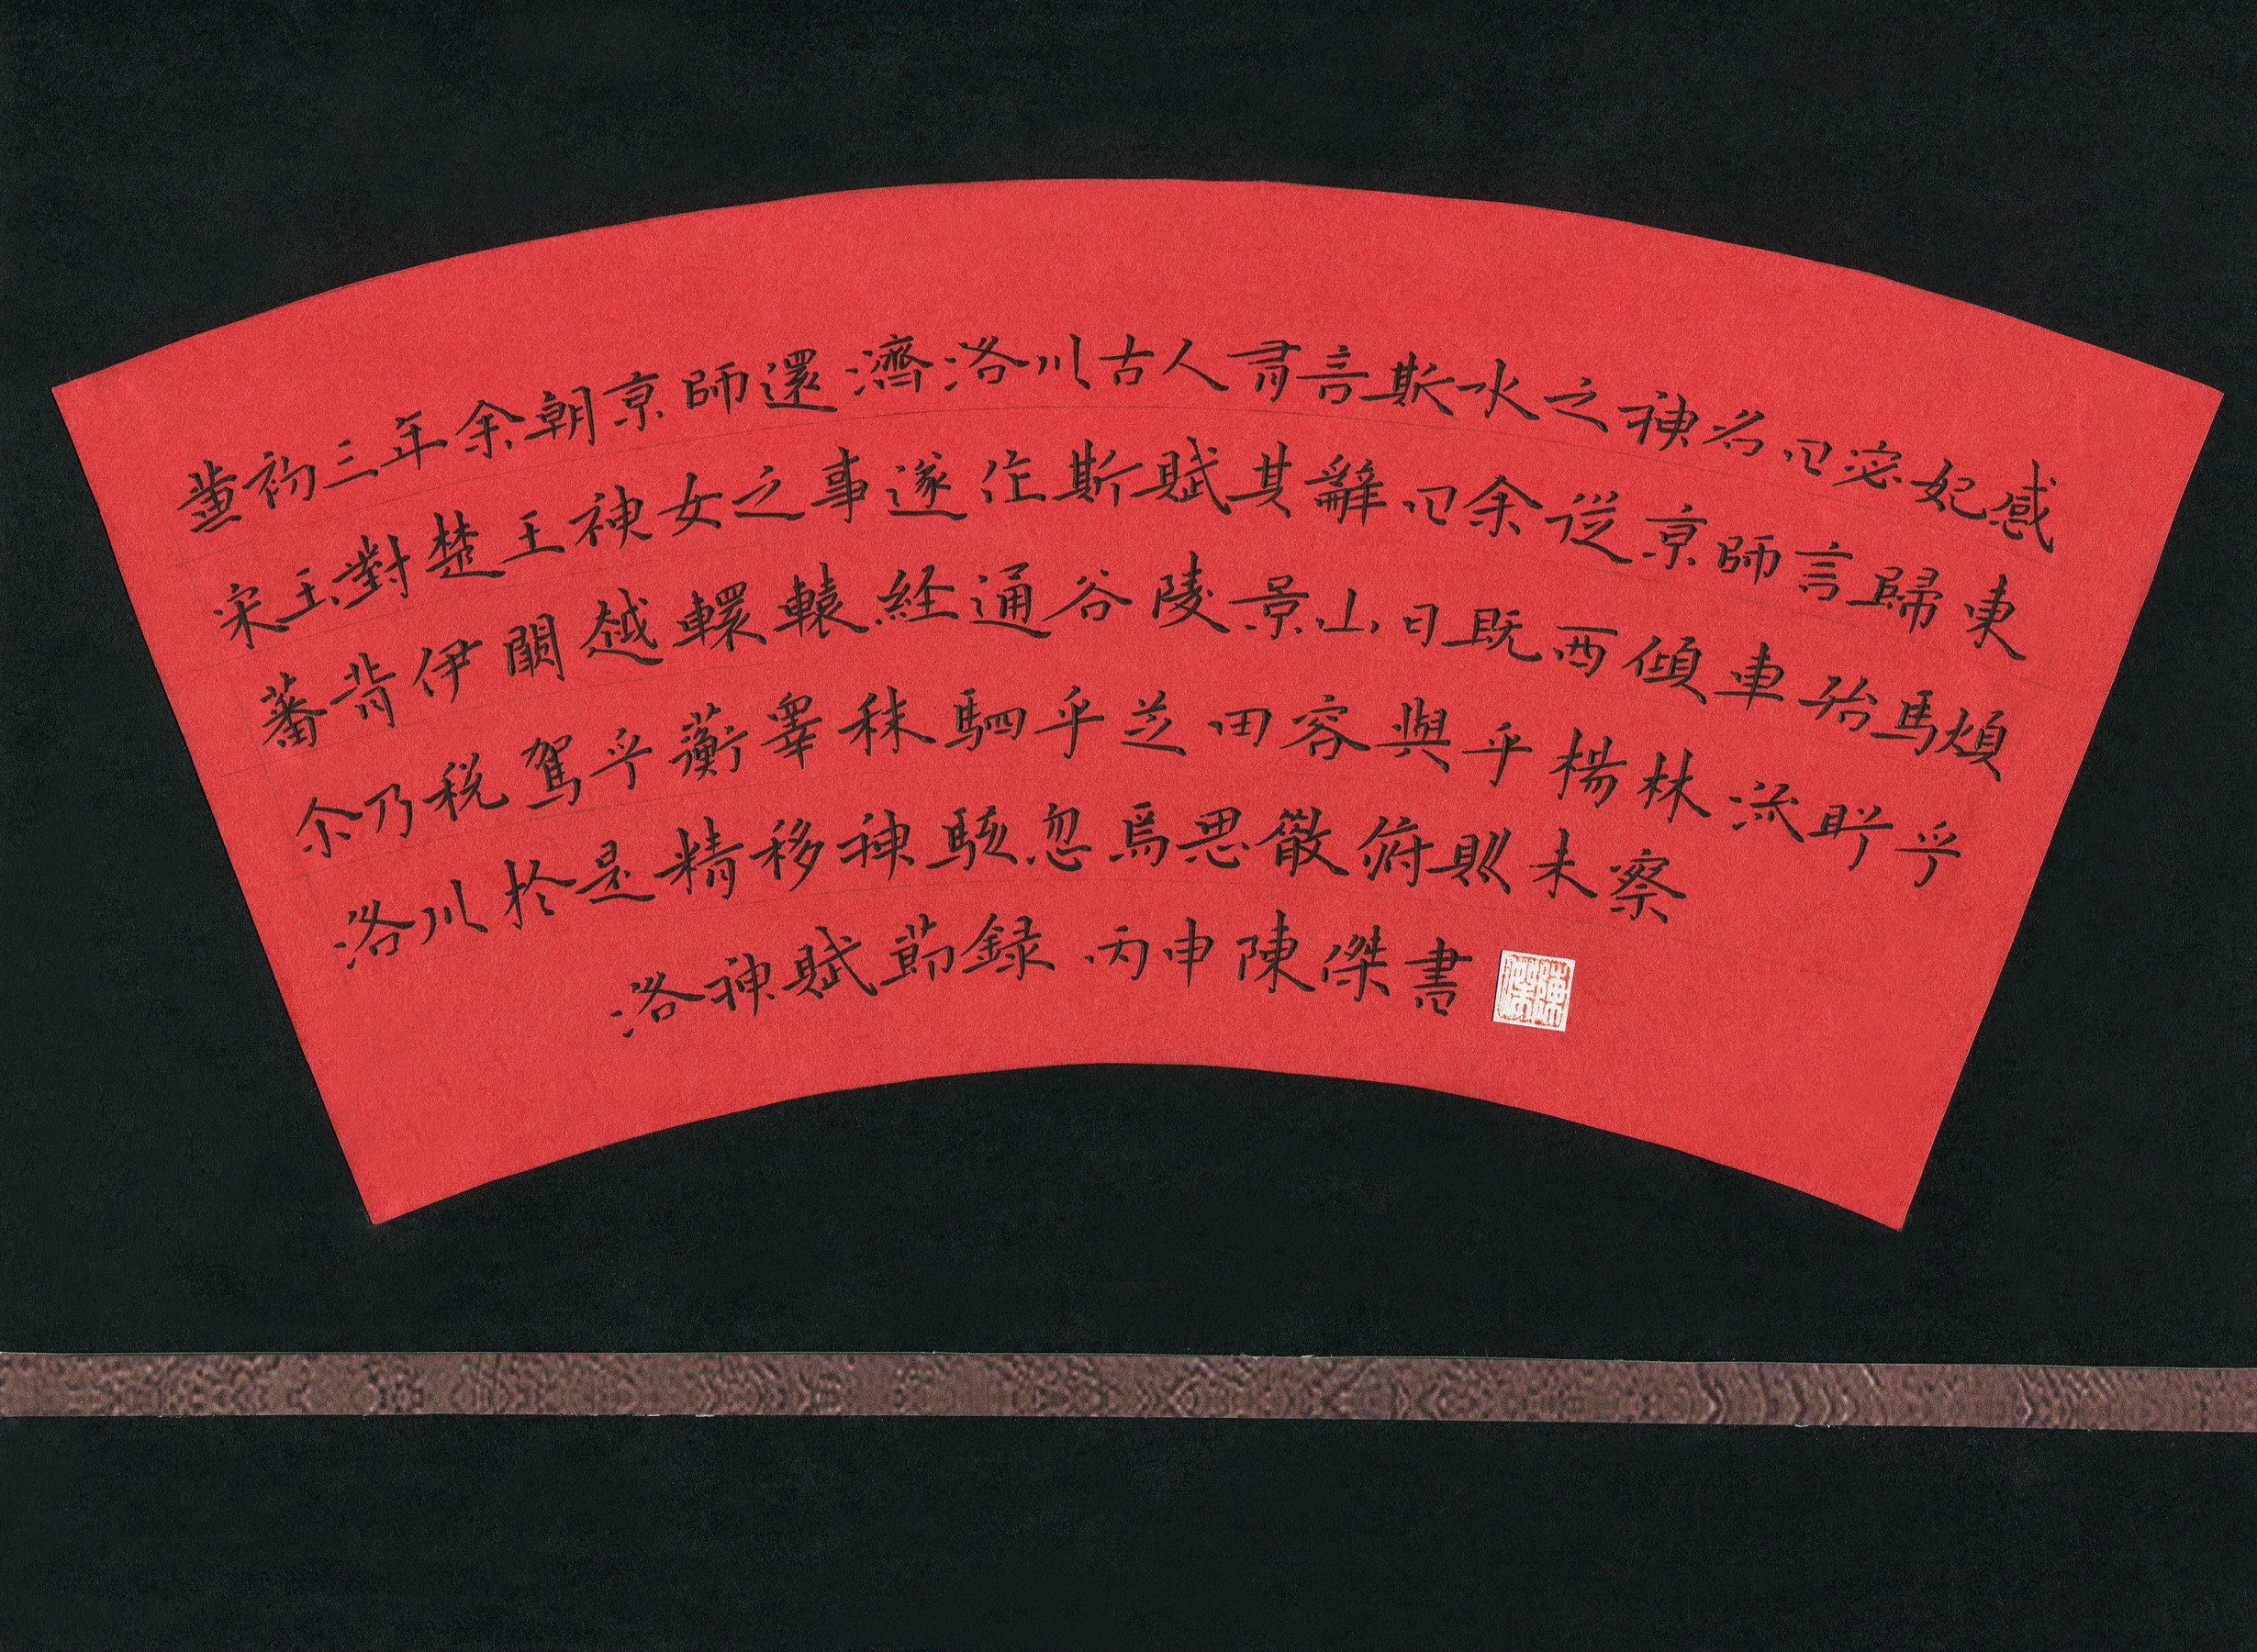 黄初三年余朝京師還濟洛川古人有言斯水之神名曰宓妃感
宋玉對楚王神女之事遂作斯賦其辭曰余從京師言歸東
蕃背伊闕越轘轅經通谷陵景山日既西傾車殆馬煩
尒乃税駕乎蘅睾秣駟乎芝田容與乎楊林流眄乎
洛川於是精移神駭忽焉思散俯則未察
洛神賦節録 丙申陳傑書
陳傑